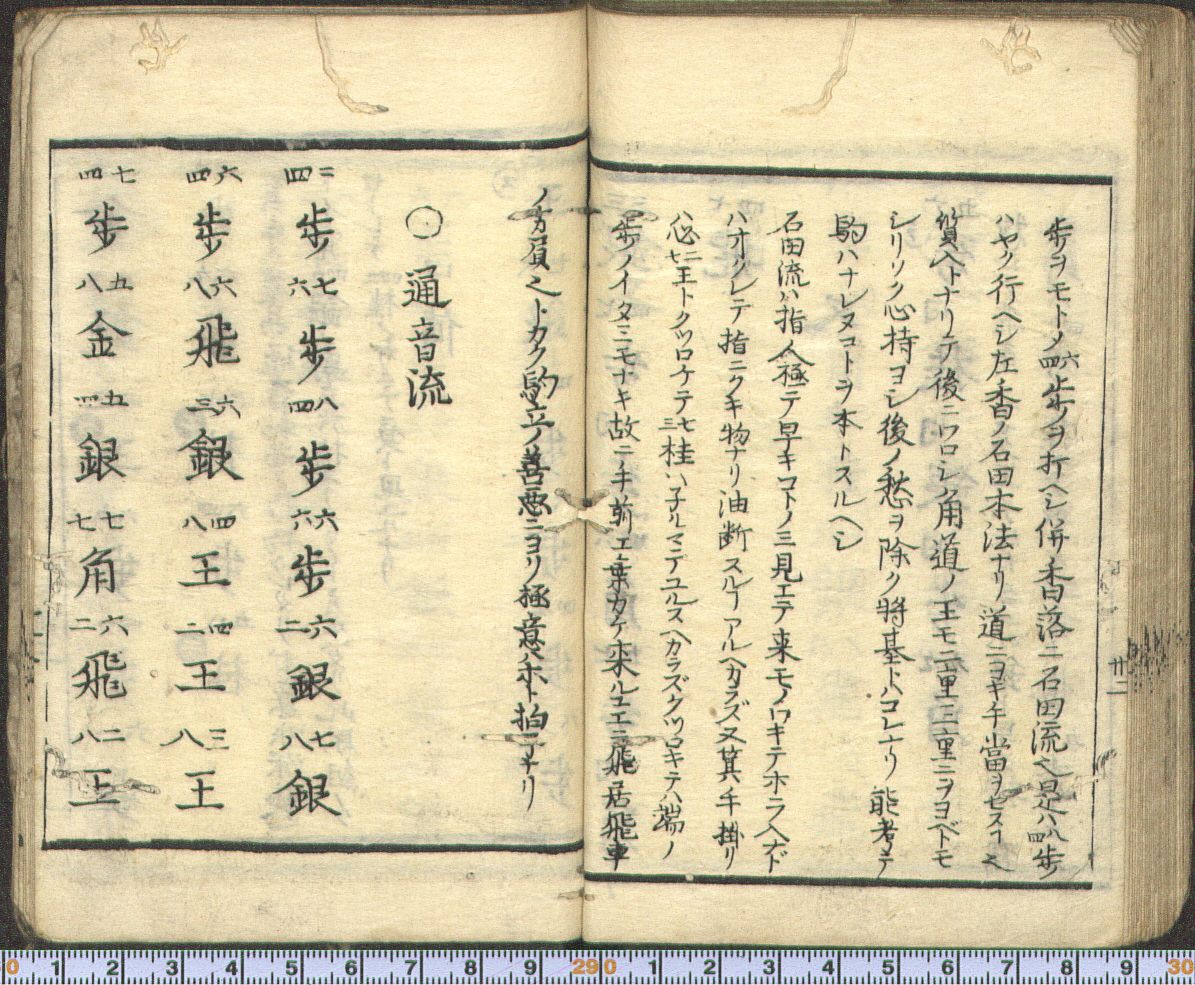 歩ヲモトノ四六歩ノヲ打ヘシ併香落ニ石田流ヘ是ハ四八歩
ハヤク行ヘシ左香ノ石田本法ナリ道ニヨキ手当ヲセスヿ
質入トナリテ後ニワロシ角道ノ王モ二重三重ニヲヨベトモ
シリソク心持ヨシ後ノ愁ヲ除ク将基トハコレナリ能考ヘテ
駒ハナレヌコトヲ本トスルヘシ
石田流ハ指人極テ早キコトノミ見エテ来モノワキテホラ入ナド
ハオクレテ指ニクキ物ナリ油断スルヿアルヘカラズ又箕手掛リ
八二王トクツロケテ三七桂ハ子ルマデユルスヘカラズクツロキテハ端ノ
歩ノイタミモナキ故ニ手前エ葉カケ来ルユエニ飛居飛車
ノ方負之トカク駒立ノ善悪ニヨリ極意ハホト拍子ナリ
○通音流
四二歩 六七歩 四八歩 六六歩 二六銀 八七銀
四六歩 八六飛 三六銀 八四王 二四王 八三王
四七歩 八五金 四五銀 七七角 二六飛 八二王
卅二
0 1 2 3 4 5 6 7 8 9 29 0 1 2 3 4 5 6 7 8 9 30